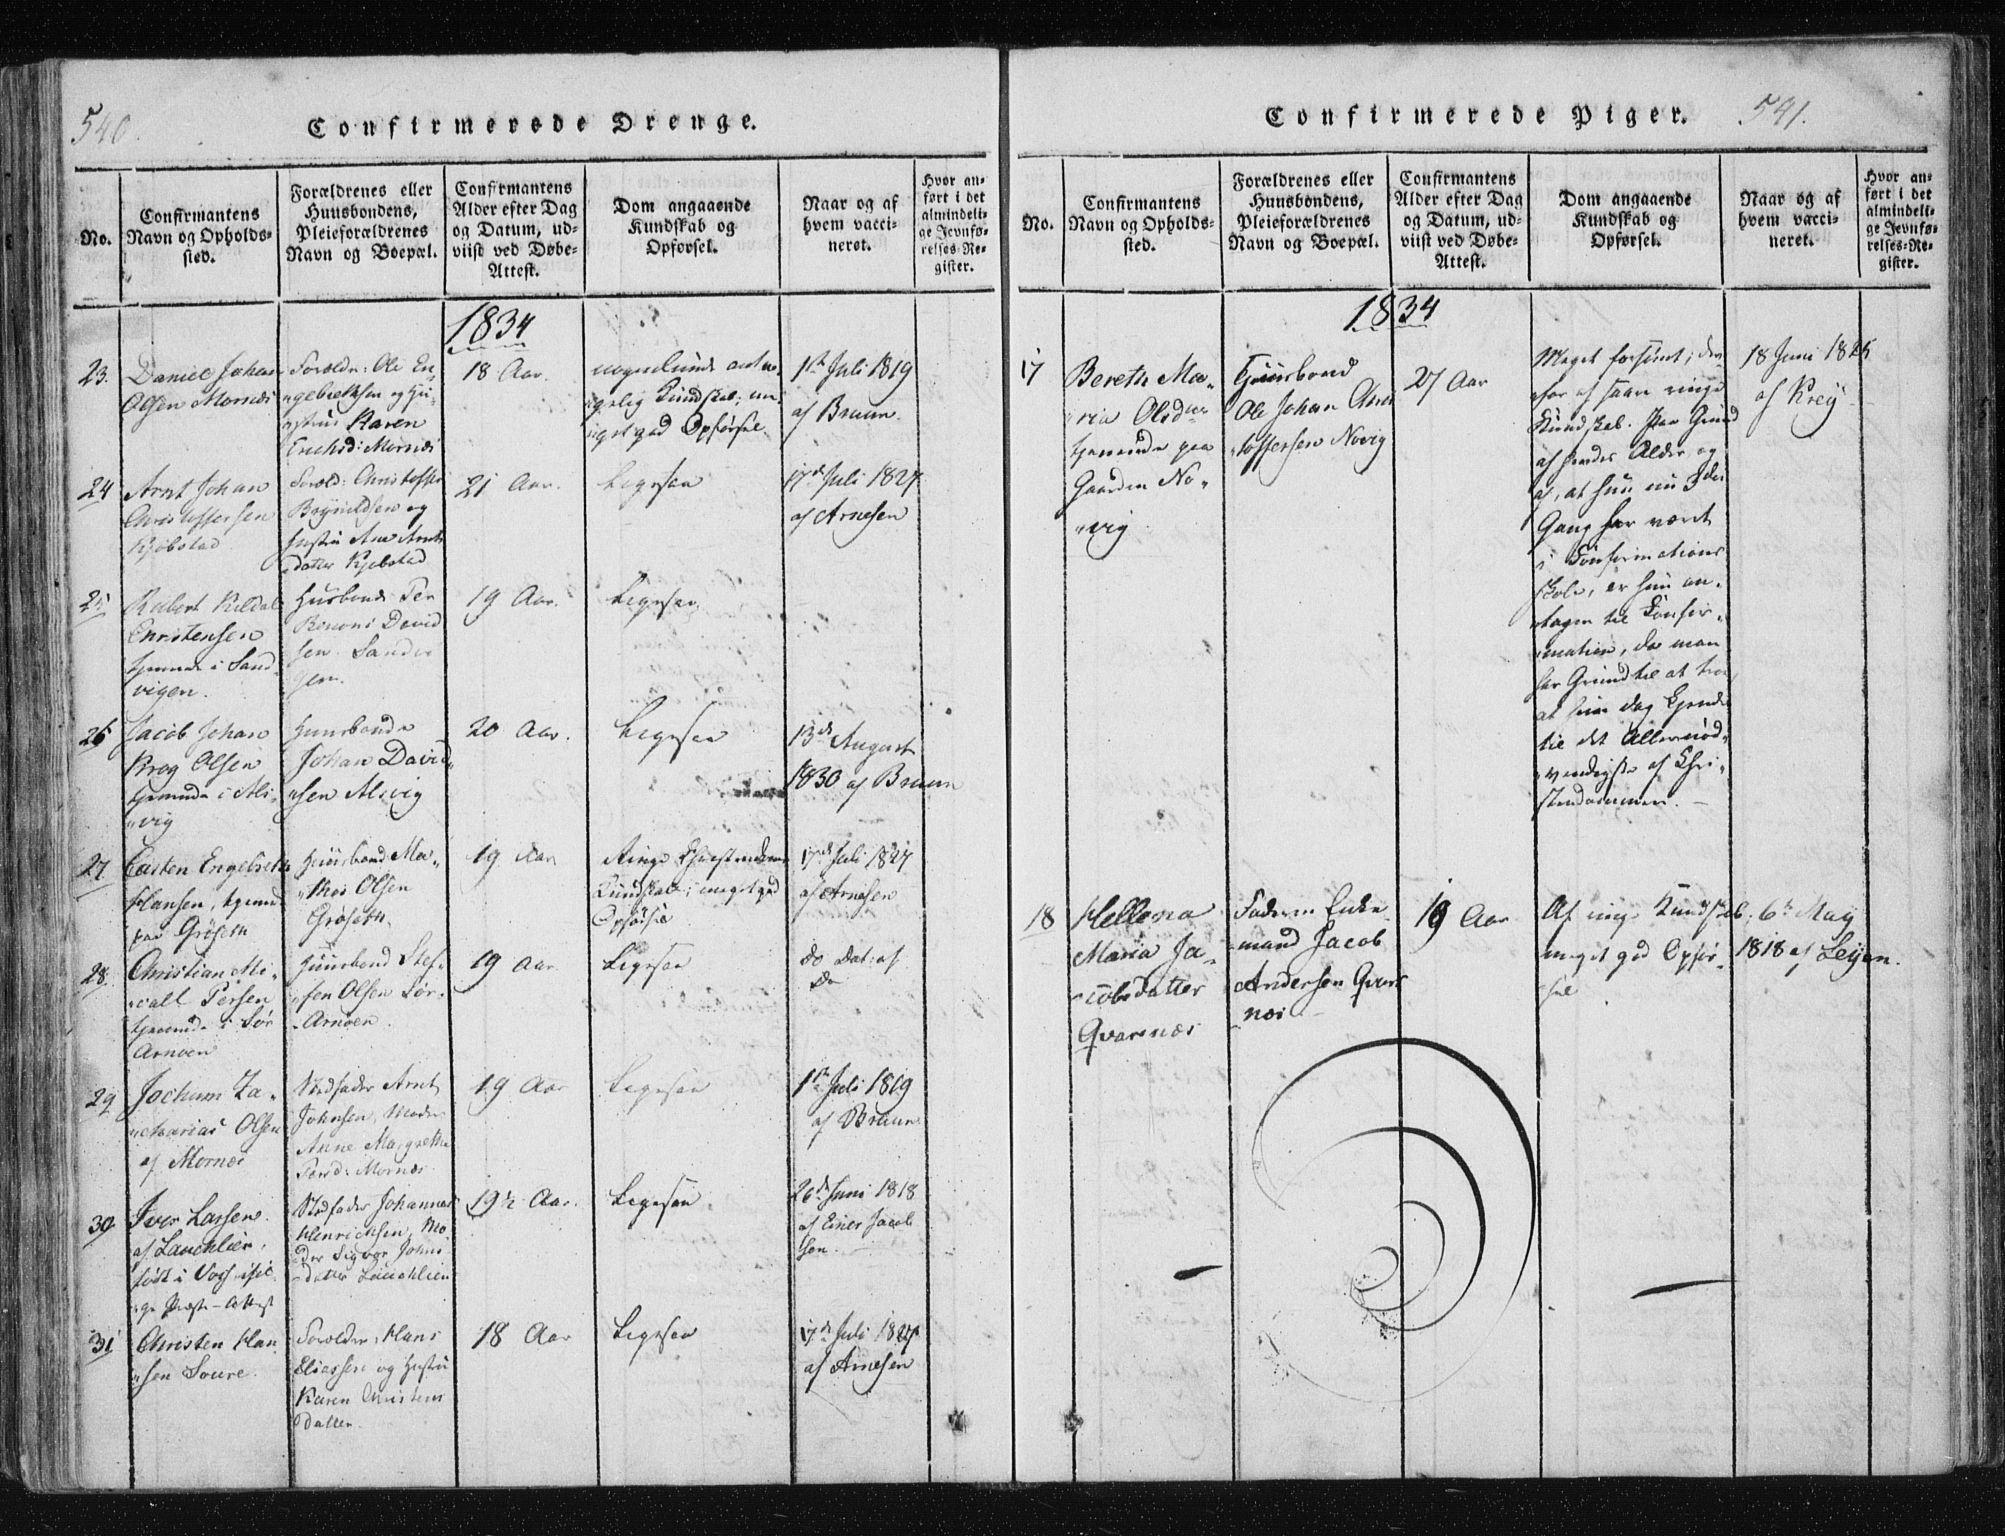 540.
Confirmerede Drenge.
No.
Confirmantens
Navn og Opholds-
sted.
Forældrenes eller
Huusbondens,
Pleieforældrenes
Navn og Boepæl.
Confirmantens
Alder efter Dag
og Datum, ud-
viist ved Døbe-
Attest.
Dom angaaende
Kundskab og
Opførsel.
Naar og af
hvem vacci-
neret.
Hvor an-
ført i det
almindeli-
ge Jevnfø-
relses-Re-
gister.
1834
23.
Daniel Johan
Olsen Mornæs
Foreldr: Ole En-
gebrethsen og Hu-
strue Karen
Erichsd: Mornæs
18 Aar.
Kundskab;
god Opførsel
1ste Juli 1819
af Bruun.
24
Arnt Johan
Christoffersen
Kjøbstad
Foreld: Christoffer
og
Hustru Ane Arnts
datter Kjøbstad
21 Aar.
Ligesaa
17de Juli 1827
af Arnesen
25
Robert Kildal
Christensen
tjenende i Sand
vigen.
Husbonde Per
Benoni David
sen Sandvi
gen.
19 Aar.
Ligesaa
26
Jacob Johan
Krog Olsen
tjenende i Als-
vig
Huusbonde
Johan David-
sen Alsvig
20 Aar.
Ligesaa
13de August
1830 af Bruun
27
Casten Engelbreth
Hansen, tjenende
paa Grøseth
Huusbond Ma-
this Olsen
Grøseth
19 Aar
Ringe Christendoms
Kundskab; meget god
Opførsel
17de Juli 1827
af Arnesen
28.
Christian Mi-
call Persen
tjenende i Sør
Arnøen
Huusbond Stef-
fen Olsen Sør-
Arnøen.
19 Aar
Ligesaa
do Dat: af
Do
29
Jochum Za-
charias Olsen
af Mornæs
Stedfader Arnt
Johnsen, Moder
Anne Margrethe
Persd: Mornæs
19 Aar
Ligesaa
1ste Juli 1819
af Bruun
30
Iver Larsen
af Lauchlien,
født i Vos iføl-
ge Præste-Attest
Stedfader Johannes
Henrichsen, Mo
der Sigvor Johns
datter Lauchlien
19½ Aar.
Ligesaa
26de Juni 1818
af Einer Jacob
sen.
31
Christen Han
sen Soure.
Foreldre: Hans
Eliassen og Hustru
Karen Christens
datter
18 Aar
Ligesaa
17de Juli 1827
af Arnesen
541.
Confirmerede Piger.
No.
Confirmantens
Navn og Opholds-
sted.
Forældrenes eller
Huusbondens,
Pleieforældrenes
Navn og Boepæl.
Confirmantens
Alder efter Dag
og Datum, ud-
viist ved Døbe-
Attest.
Dom angaaende
Kundskab og
Opførsel.
Naar og af
hvem vacci-
neret.
Hvor an-
ført i det
almindeli-
ge Jevnfø-
relses-Re-
gister.
1834
17
Bereth Ma-
ria Olsdtr
tjenende paa
Gaarden No-
vig
Huusbond
Ole Johan Chris
toffersen Novig
27 Aar
Meget forsømt; der
for af saare ringe
Kundskab. Paa Grund
af hendes Alder og
af, at hun nu 3die
Gang har været
i Confirmations
skole, er hun an-
tagen til Confir-
mation, da man
har Grund til at troe
at hun dog kjender
til det Allernød-
vendigste af Chri-
stendommen.
18 Juni 1825
af Krey
18
Hellena
Maria Ja-
cobsdatter
Qvarsnæs
Faderen Enke-
mand Jacob
Andersen Qvars
næs
19 Aar
Af ringe Kundskab,
meget god Opfør-
sel
6te May
1818 af Leyen.